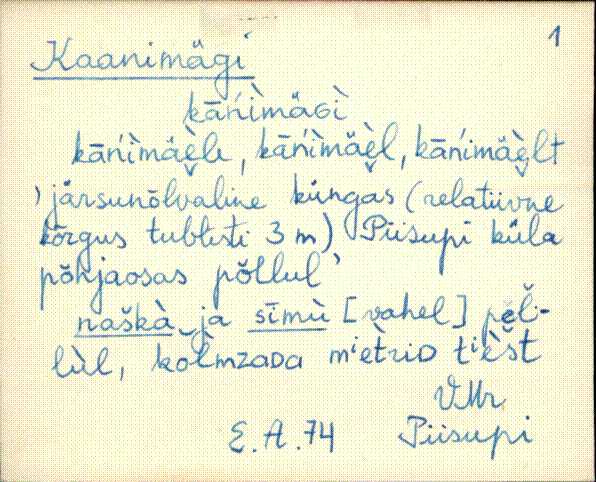 1
Kaanimägi
kāńìmäGì
kāńìmäe̬le, kāńìmäe̬l, kāńìmäe̬lt
'järsunõlvaline küngas (relatiivne
kõrgus tublisti 3 m) Piisupi küla
põhjaosas põllul'
naškà ja sīmù [vahel]
lùl, kolmzaDa miètriD tièšt
VMr
E.A.74 Piisupi